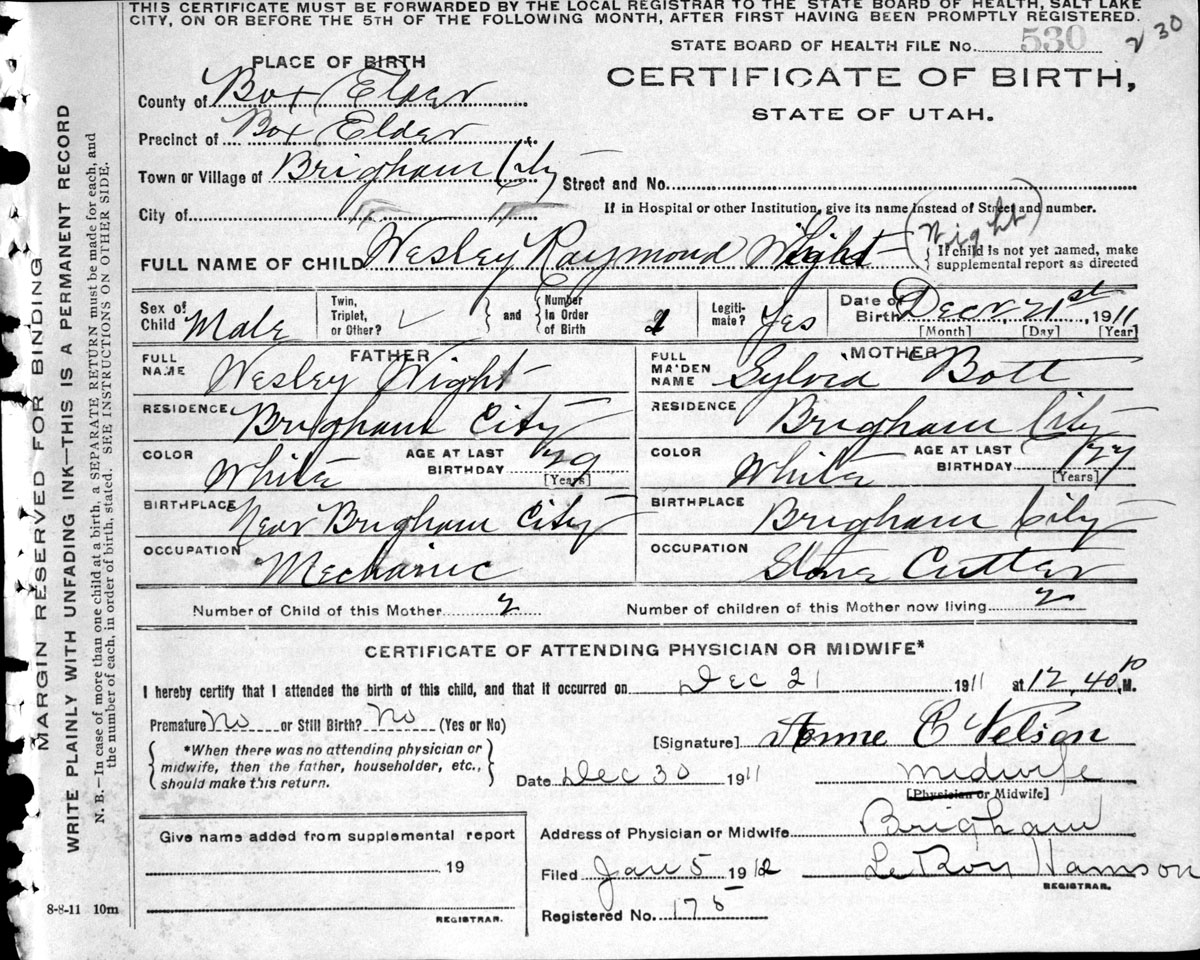 THIS CERTIFICATE MUST BE FORWARDED BY THE LOCAL REGISTRAR TO THE STATE BOARD OF HEALTH, SALT LAKE
CITY, ON OR BEFORE THE 5TH OF THE FOLLOWING MONTH, AFTER FIRST HAVING BEEN PROMPTLY REGISTERED.
STATE BOARD OF HEALTH FILE No. 530
30
PLACE OF BIRTH
CERTIFICATE OF BIRTH,
STATE OF UTAH.
County of Box Elder
Precinct of Box Elder
Town or Village of Brigham City
Street and No.
City of
If in Hospital or other Institution, give its name instead of Street and number.
FULL NAME OF CHILD Wesley Raymond Wight (Wight)
If child is not yet named, make
supplemental report as directed
Sex of Child Male
Twin, Triplet, or Other?
and
Number In Order of Birth
Legiti-mate? Yes
Date of Birth Decr 21st, 1911
[Month] [Day] [Year]
FATHER
FULL NAME Wesley Wight
RESIDENCE Brigham City
COLOR White
AGE AT LAST BIRTHDAY 29
[Years]
BIRTHPLACE Near Brigham City
OCCUPATION Mechanic
MOTHER
FULL MAIDEN NAME Sylvia Bott
RESIDENCE Brigham City
COLOR White
AGE AT LAST BIRTHDAY 27
[Years]
BIRTHPLACE Brigham City
OCCUPATION Stone Cutter
Number of Child of this Mother 2
Number of children of this Mother now living 2
CERTIFICATE OF ATTENDING PHYSICIAN OR MIDWIFE*
I hereby certify that I attended the birth of this child, and that it occurred on Dec 21 1911 at 12,40 P.M.
Premature No or Still Birth? No (Yes or No)
*When there was no attending physician or
midwife, then the father, householder, etc.,
should make this return.
[Signature] C Nelson
Date Dec 30 1911
Midwife
[Physician or Midwife]
Give name added from supplemental report
19
REGISTRAR.
Address of Physician or Midwife Brigham
Filed Jan 5 1912
LeRoy
REGISTRAR.
Registered No. 175
8-8-11 10m
MARGIN RESERVED FOR BINDING
WRITE PLAINLY WITH UNFADING INK—THIS IS A PERMANENT RECORD
N. B.—In case of more than one child at a birth, a SEPARATE RETURN must be made for each, and
the number of each, in order of birth, stated. SEE INSTRUCTIONS ON OTHER SIDE.